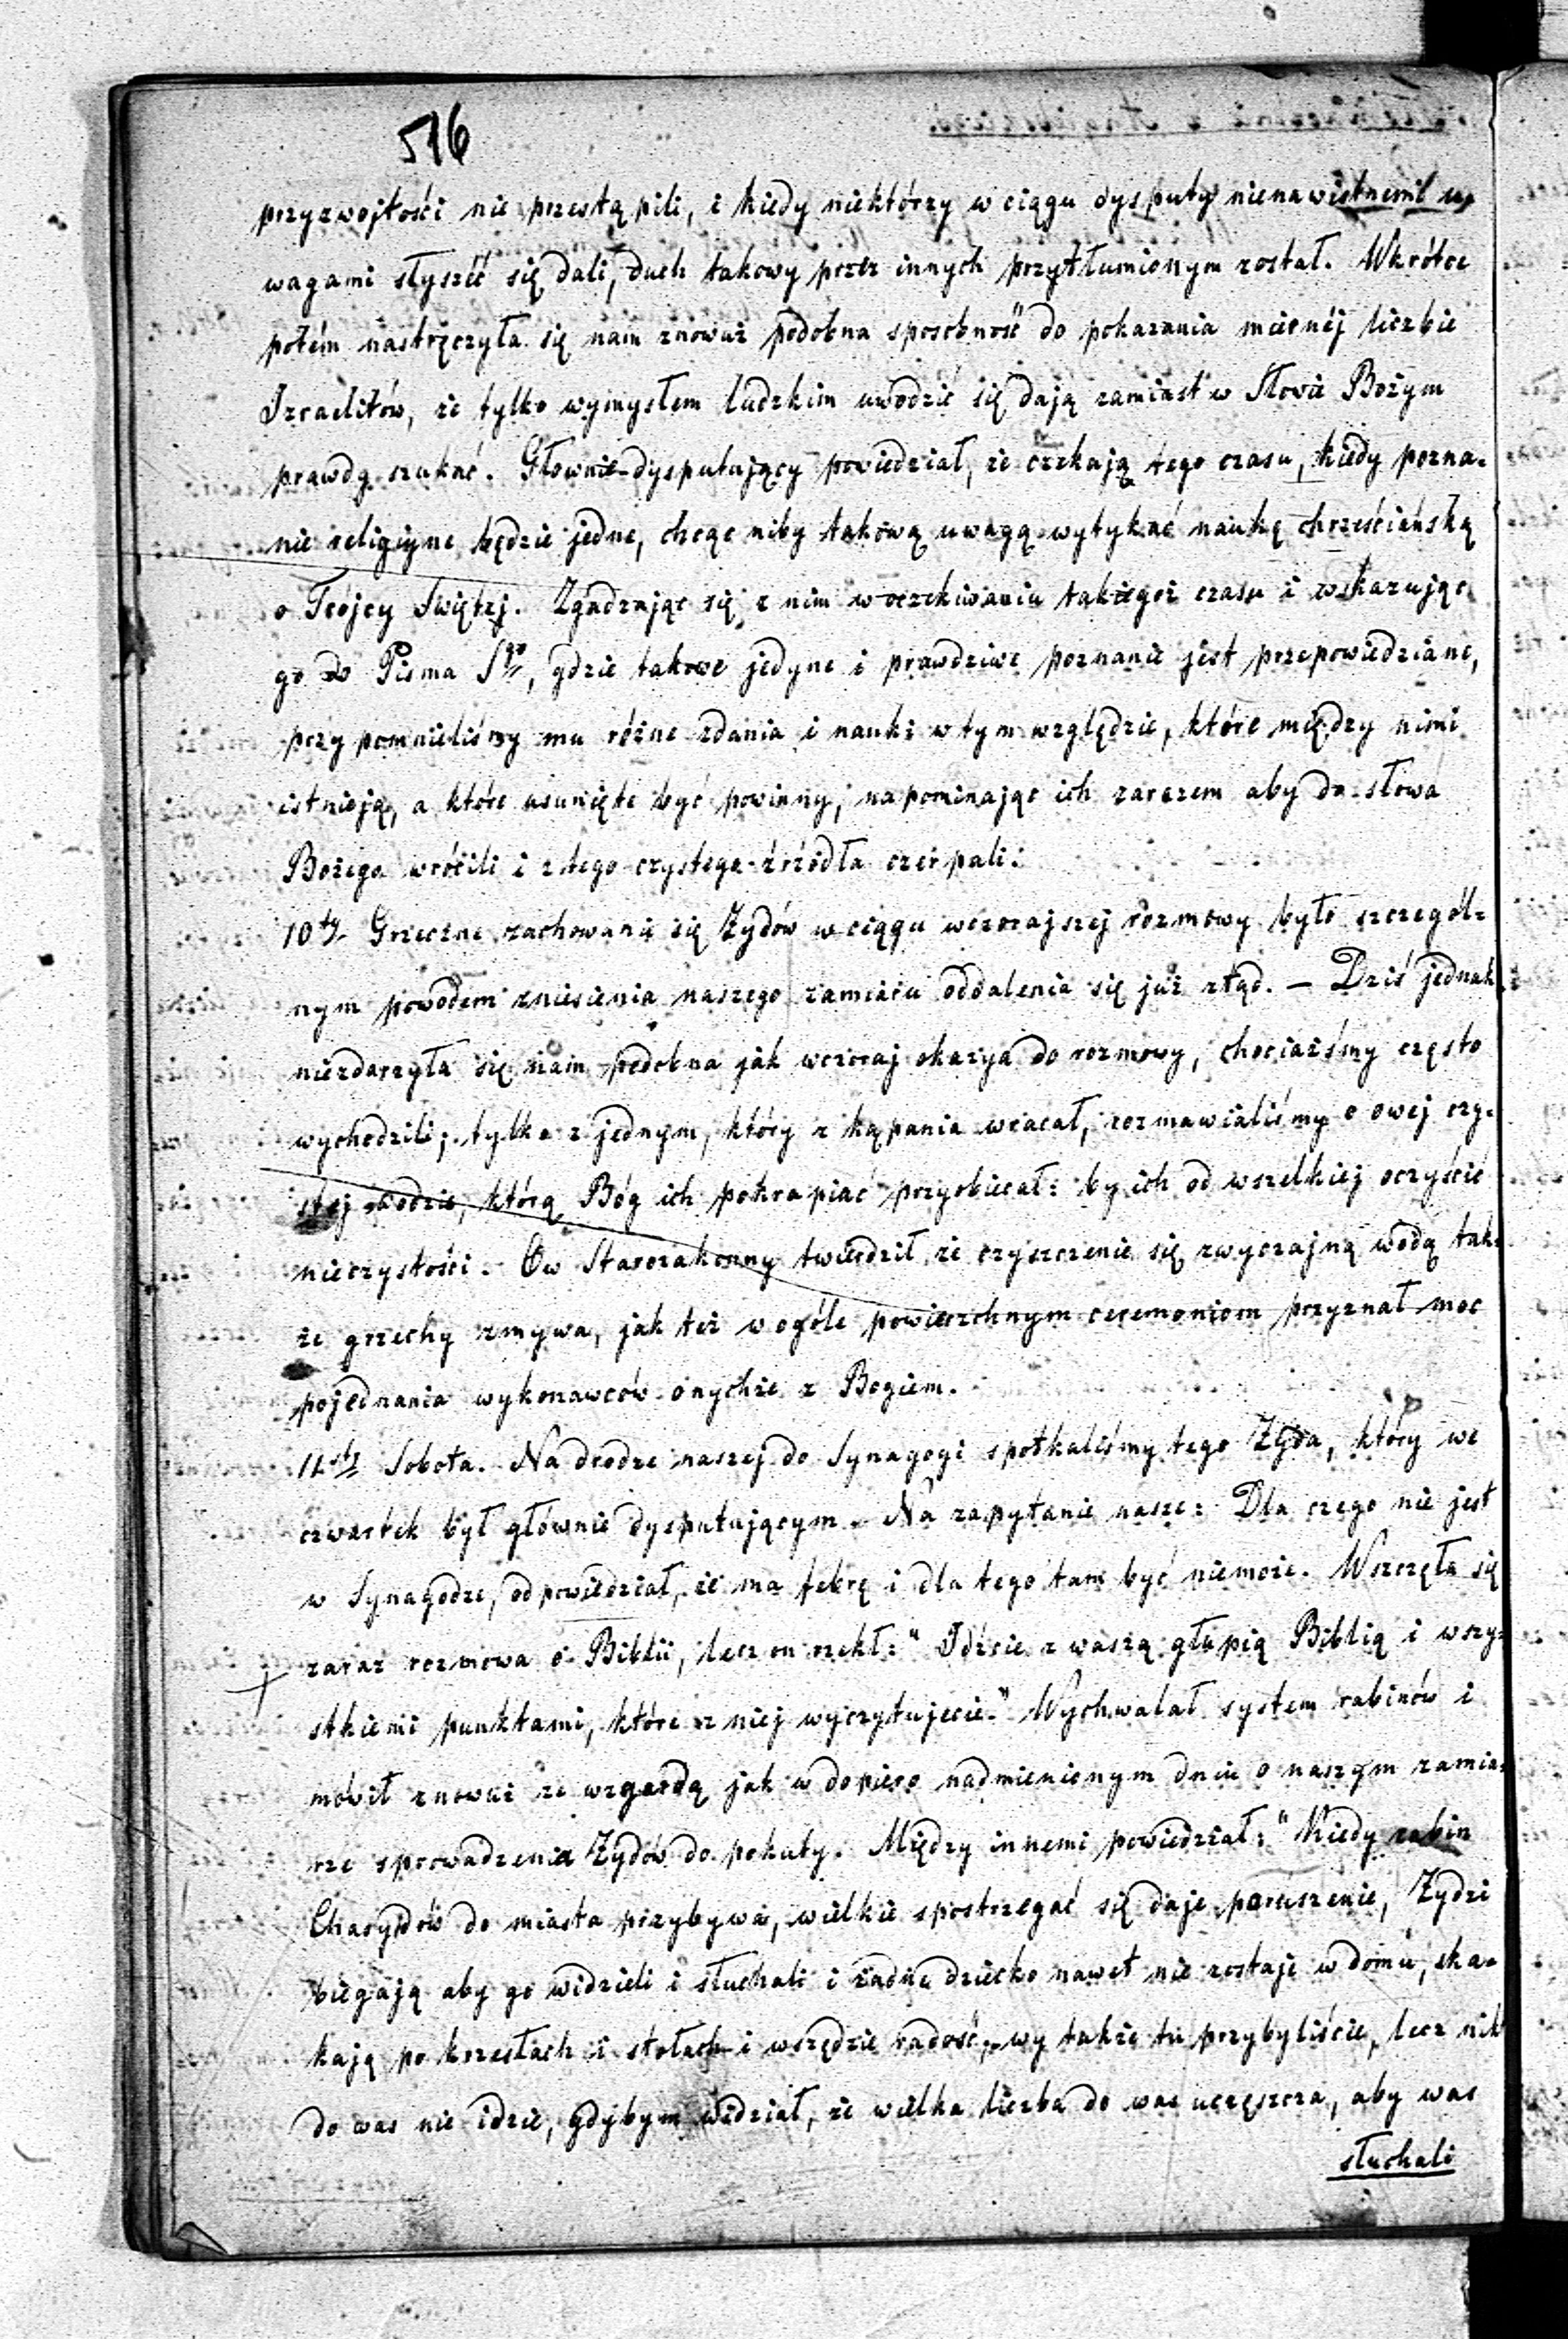 516
przyzwojtości nie przestąpili, i kiedy niektórzy w ciągu dysputy nienawistnemi u,
wagami słyszéć się dali, duch takowy przez innych przytłumionym został. Wkrótce
potém nastręczyła się nam znowuż podobna sposobność do pokazania miernéj liczbie
Izraelitów, że tylko wymysłem ludzkim uwodzić się dają zamiast w Słowie Bożym
prawdy szukać. Głownie dysputujący powiedział, że czekają tego czasu, kiedy pozna-
nie religijne będzie jedne, chcąc niby takową uwagą wytykać naukę chrześciańską
o Trójcy Świętej. Zgadzając się z nim w oczekiwaniu takiegoż czasu i wskazując
go do Pisma Sgo, gdzie takowe jedyne i prawdziwe poznanie jest przepowiedziane,
przypomnieliśmy mu różne zdania i nauki w tym względzie, które między nimi
istnieją, a które usunięte być powinny, napominając ich zarazem aby do słowa
Bożego wrócili i z tego czystego źrzódła czérpali.
10ty Grzeczne zachowanie się Żydów w ciągu wczorajszej rozmowy było szczegól-
nym powodem zniesienia naszego zamiaru oddalenia się już ztąd. — Dziś jednak
niezdarzyła się nam podobna jak wczoraj okazya do rozmowy, chociażśmy często
wychodzili; tylko z jednym, który z kąpania wracał, rozmawialiśmy o owej czy-
stej wodzie, którą Bóg ich pokrapiać przyobiecał: by ich od wszelkiej oczyścić
nieczystości. Ów Starozakonny twierdził że czyszczenie się zwyczajną wodą tak-
że grzechy zmywa, jak też w ogóle powierzchnym ceremoniom przyznał moc
pojednania wykonawców onychże z Bogiem.
11sty Sobota. Na drodze naszej do Synagogi spotkaliśmy tego Żyda, który we
czwartek był głównie dysputującym. Na zapytanie nasze: Dla czego nie jest
w Synagodze, odpowiedział, że ma febrę i dla tego tam być niemoże. Wszczęła się
zaraz rozmowa o Biblii, lecz on rzekł: "Idźcie z waszą głupią Biblią i wszy-
stkiemi punktami, które z niej wyczytujecie." Wychwalał system rabinów i
mówił znowuż ze wzgardą jak w dopiero nadmienionym dniu o naszym zamia-
rze sprowadzenia Żydów do pokuty. Między innemi powiedział: "Kiedy rabin
Chasydów do miasta przybywa, wielkie spostrzegać się daje poruszenie, Żydzi
biegają aby go widzieli i słuchali i żadne dziecko nawet nie zostaje w domu, ska-
kają po krzesłach i stołach i wszędzie radość, wy także tu przybyliście, lecz nikt
do was nie idzie, gdybym widział, że wielka liczba do was uczęszcza, aby was
słuchali